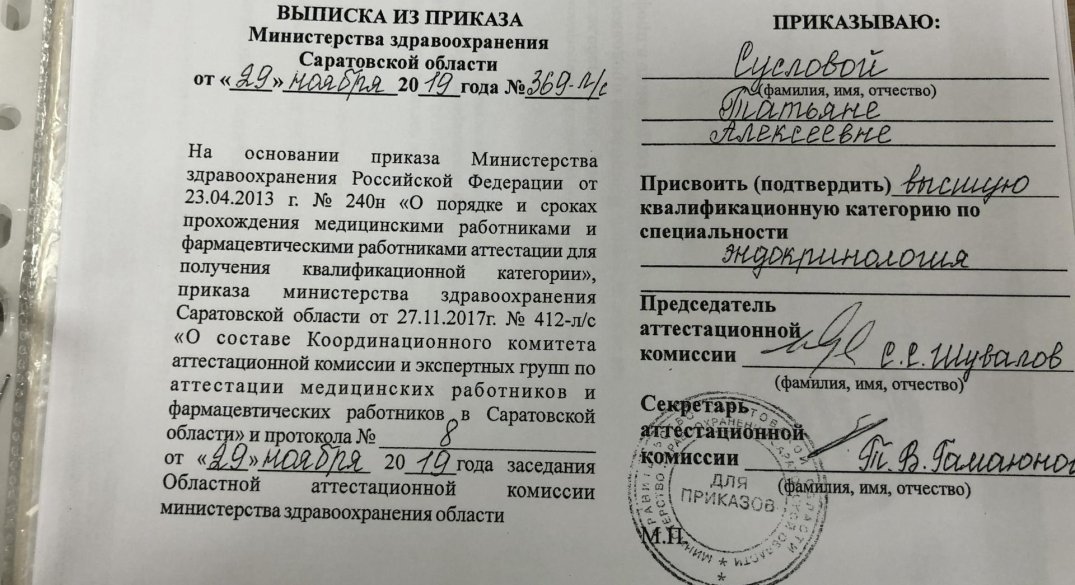 ВЫПИСКА ИЗ ПРИКАЗА
Министерства здравоохранения
Саратовской области
от «29» ноября 2019 года №369-л/с
На основании приказа Министерства
здравоохранения Российской Федерации от
23.04.2013 г. № 240н «О порядке и сроках
прохождения медицинскими работниками и
фармацевтическими работниками аттестации для
получения квалификационной категории»,
приказа министерства здравоохранения
Саратовской области от 27.11.2017г. № 412-л/с
«О составе Координационного комитета
аттестационной комиссии и экспертных групп по
аттестации медицинских работников и
фармацевтических работников в Саратовской
области» и протокола № 8
от «29» ноября 2019 года заседания
Областной аттестационной комиссии
министерства здравоохранения области
ПРИКАЗЫВАЮ:
Сусловой
(фамилия, имя, отчество)
Татьяне
Алексеевне
Присвоить (подтвердить) высшую
квалификационную категорию по
специальности
эндокринология
Председатель
аттестационной
комиссии С.С. Шувалов
(фамилия, имя, отчество)
Секретарь
аттестационной
комиссии Т.В. Гамаюнов
(фамилия, имя, отчество)
ДЛЯ
ПРИКАЗОВ
М.П.